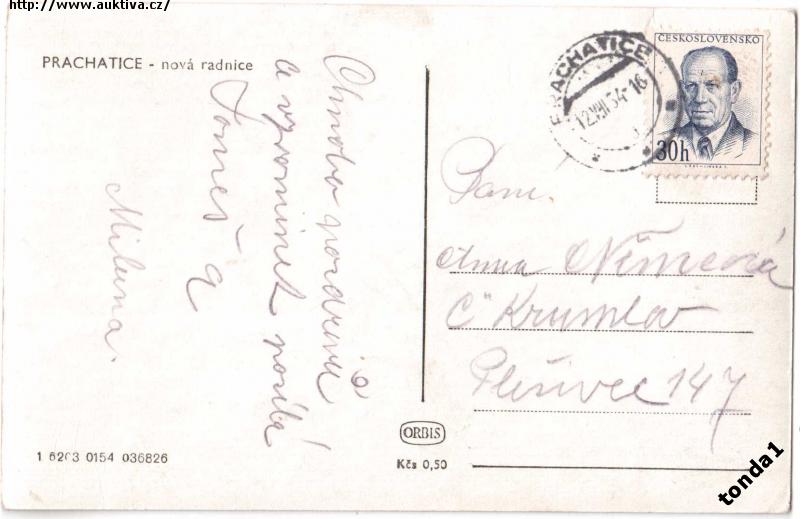 http://www.auktiva.cz/
PRACHATICE - nová radnice
ČESKOSLOVENSKO
30h
PRACHATICE
12.VIII.54-16
a vzpomínek posílá
Milena.
Paní
Anna Němcová
Č. Krumlov
Plešivec 147
ORBIS
Kčs 0,50
1 6203 0154 036826
tonda1